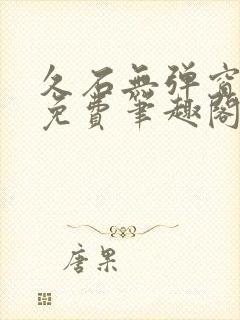 久石無弹窗
免費筆趣閣
唐果